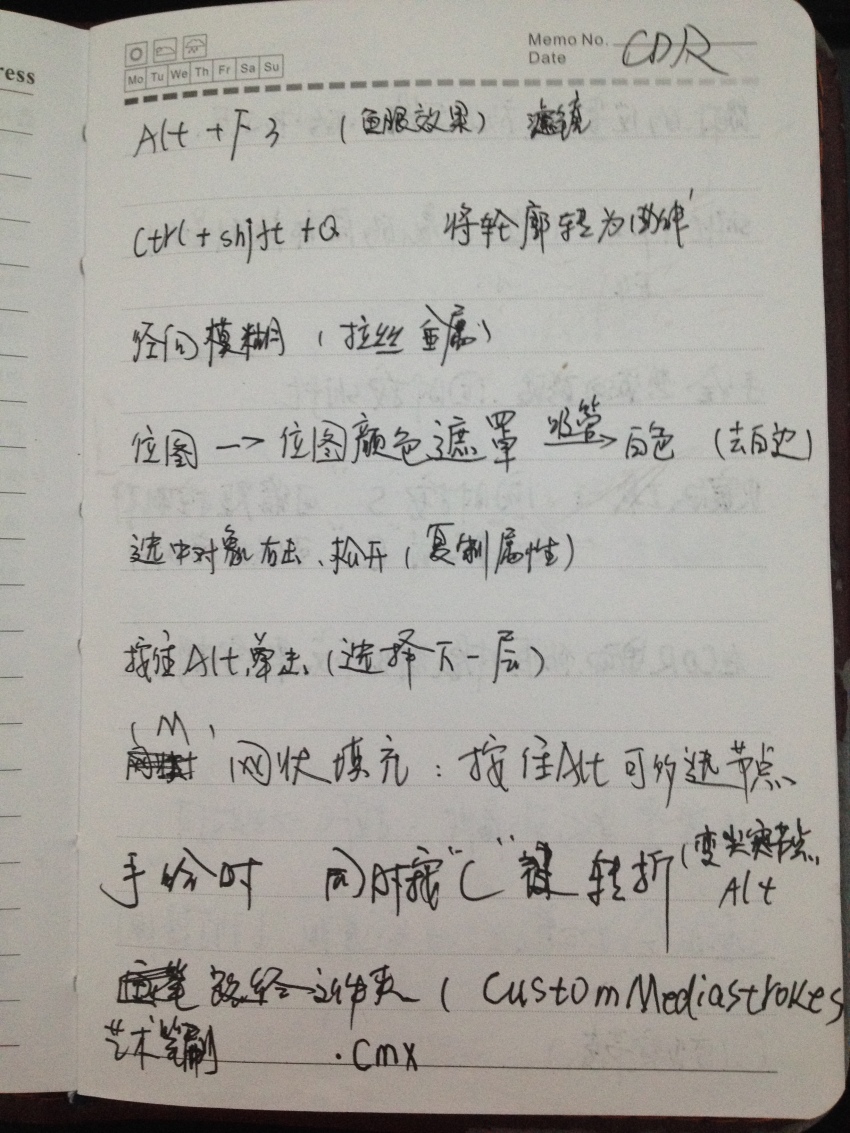 ress
Memo No. CDR
Date
Mo Tu We Th Fr Sa Su
Alt + F3 (鱼眼效果) 滤镜
Ctrl + shift + Q 将轮廓转为曲线
径向模糊 (拉丝金属)
位图 → 位图颜色遮罩 吸管→ 白色 (去白边)
选中对象右击、松开 (复制属性)
按住Alt,单击、(选择下一层)
(M)
网状填充:按住Alt可多选节点
手绘时 同时按“C”键 转折 (变尖突节点
Alt
路径文件夹 ( CustomMediastrokes
艺术笔刷 .cmx